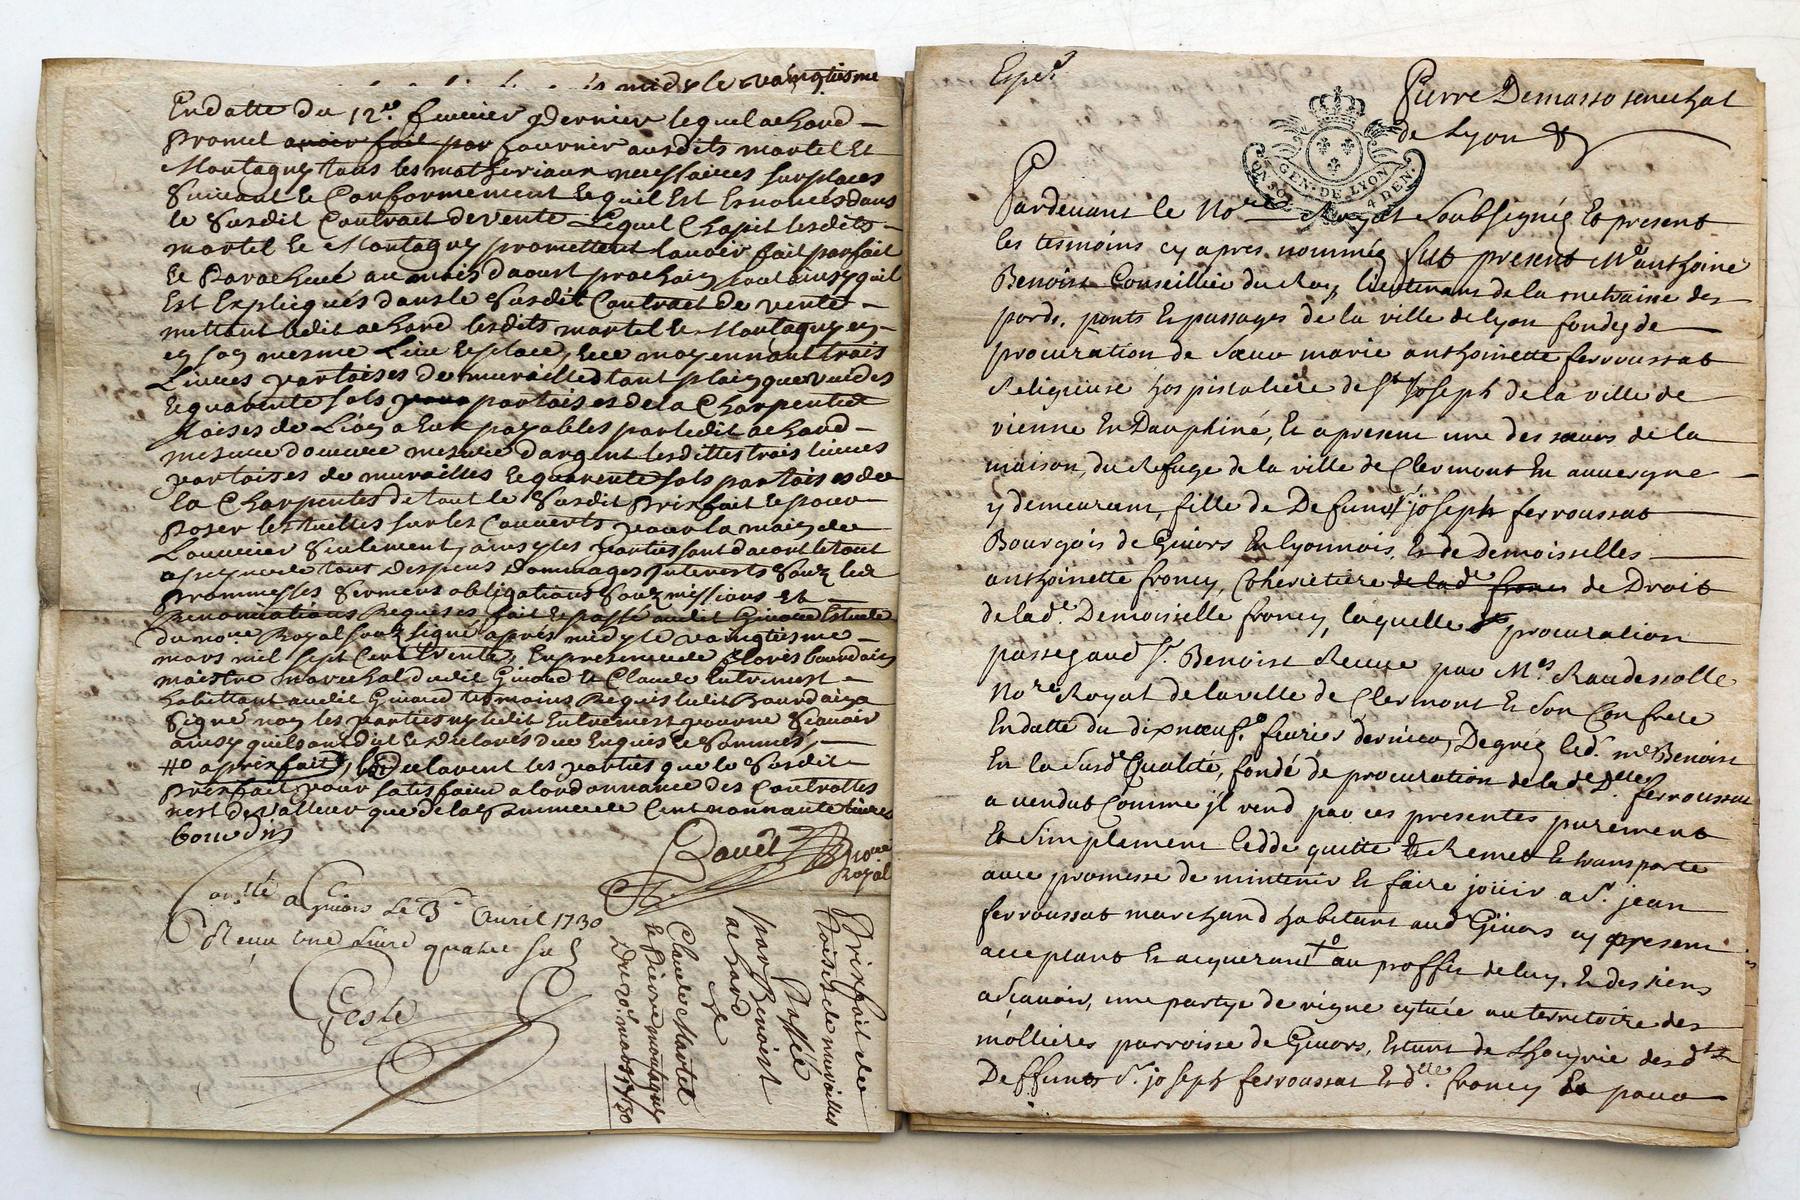 midy le vaingtiesme
En datte du 12e. fevrier dernier lequel achard
promet avoir fait par fournir ausdits martel Et
Montagny tous les matheriaux necessaires sur places
suivant le Conformement le quil Est Enoncés dans
le susdit Contract de vente Lequel lesdits
martel Et Montagny promettent lavoir fait parfait
Et Parachevé au mois daoust prochain tout ainsy quil
Est Expliqués dans le susdit Contract de vente
mettant ledit achard lesdits martel Et Montagny en
son mesme Lieu Et place, Et ce moyennant trois
Livres par toises de murailles tant plain que vuides
Et quarente sols pour par toises de la Charpente
Toises de Lion a Eux payables par ledit achard
mesure douvre mesure dargent lesdittes trois livres
par toises de murailles Et quarente sols par toises de
la Charpente de tout le susdit Prixfait Et pour
Poser les tuilles sur les Couverts pour la main de
Louvrier seulement, ainsy les parties sont dacort le tout
a peyne de tous Despens Dommages Interests soubz les
prommesses serments obligations soubzmissions Et
Renonciations Requises fait Et passé audit Givord Estude
du nore Royal soubzsigné apres midy le vaingtiesme
mars mil sept Cent trente, En presence de Bourdain
maistre marechal dudit Givord Et Claude Entremest
habittant audit Givord tesmoins Requis ledit Bourdain a
Signé non les parties ny ledit Entremest pour ne scavoir
ainsy quils ont dit Et Declarés de ce Enquis Et Sommés,
a prixfait, Declarent les parties que le susdit
Prixfait pour satisfaire a lordonnance des Controlles
nest de valleur que de la somme de Cent nonnante livres
bourdin
Davet nore
Royal
a Givors Le 3e Avril 1730
Receu une Livre quatre sols
Geste
Prixfait de
toises de murailles
Passée
par Benoist
achard
a
Claude Martel
Et Pierre montagny
Du 20e. mars 1730
Expé.
Pierre Demasso senechal
de Lyon &
GEN. DE LYON
4 DEN.
Pardevant le Nore Royal Soubsigné Et present
les tesmoins cy apres nommés fut present Me anthoine
Benoist Conseillier du Roy, lieutenant de la maitrise des
ports, ponts Et passages de la ville de lyon fondé de
procuration de Sœur marie anthoinette ferroussat
Religieuse hospitaliere de St Joseph de la ville de
vienne En Dauphiné, Et apresent une des sœurs de la
maison, du Refuge de la ville de Clermont En auvergne
y demeurant, fille de Defunt Sr. joseph ferroussat
Bourgois de Givors En lyonnois, Et de Demoiselles
anthoinette froncy, Coheritiere de lade froncy de Droit
de lade. Demoiselle froncy, laquelle procuration
passe Sr. Benoist Receue par Mes Raudessolle
Nore Royal de la ville de Clermont Et Son Confrere
En datte du dixneufe. fevrier dernier, De gré led. me Benoist
En la Susde Qualité, fondé de procuration de lade Dlle ferroussat
a vendut Comme jl vend par ces presentes purement
Et Simplement Cedde quitte Et Remet Et transporte
avec promesse de maintenir Et faire joüir a Sr. jean
ferroussat marchand habitant aud Givors cy present
acceptant Et acquerant au proffit de luy, Et des siens
a Sçavoir, une partye de vigne cytuée au territoire des
mollieres parroisse de Givors, Estant de Lhoyrie des dts
Deffunts Sr. joseph ferroussat Et dlle. froncy Et pour